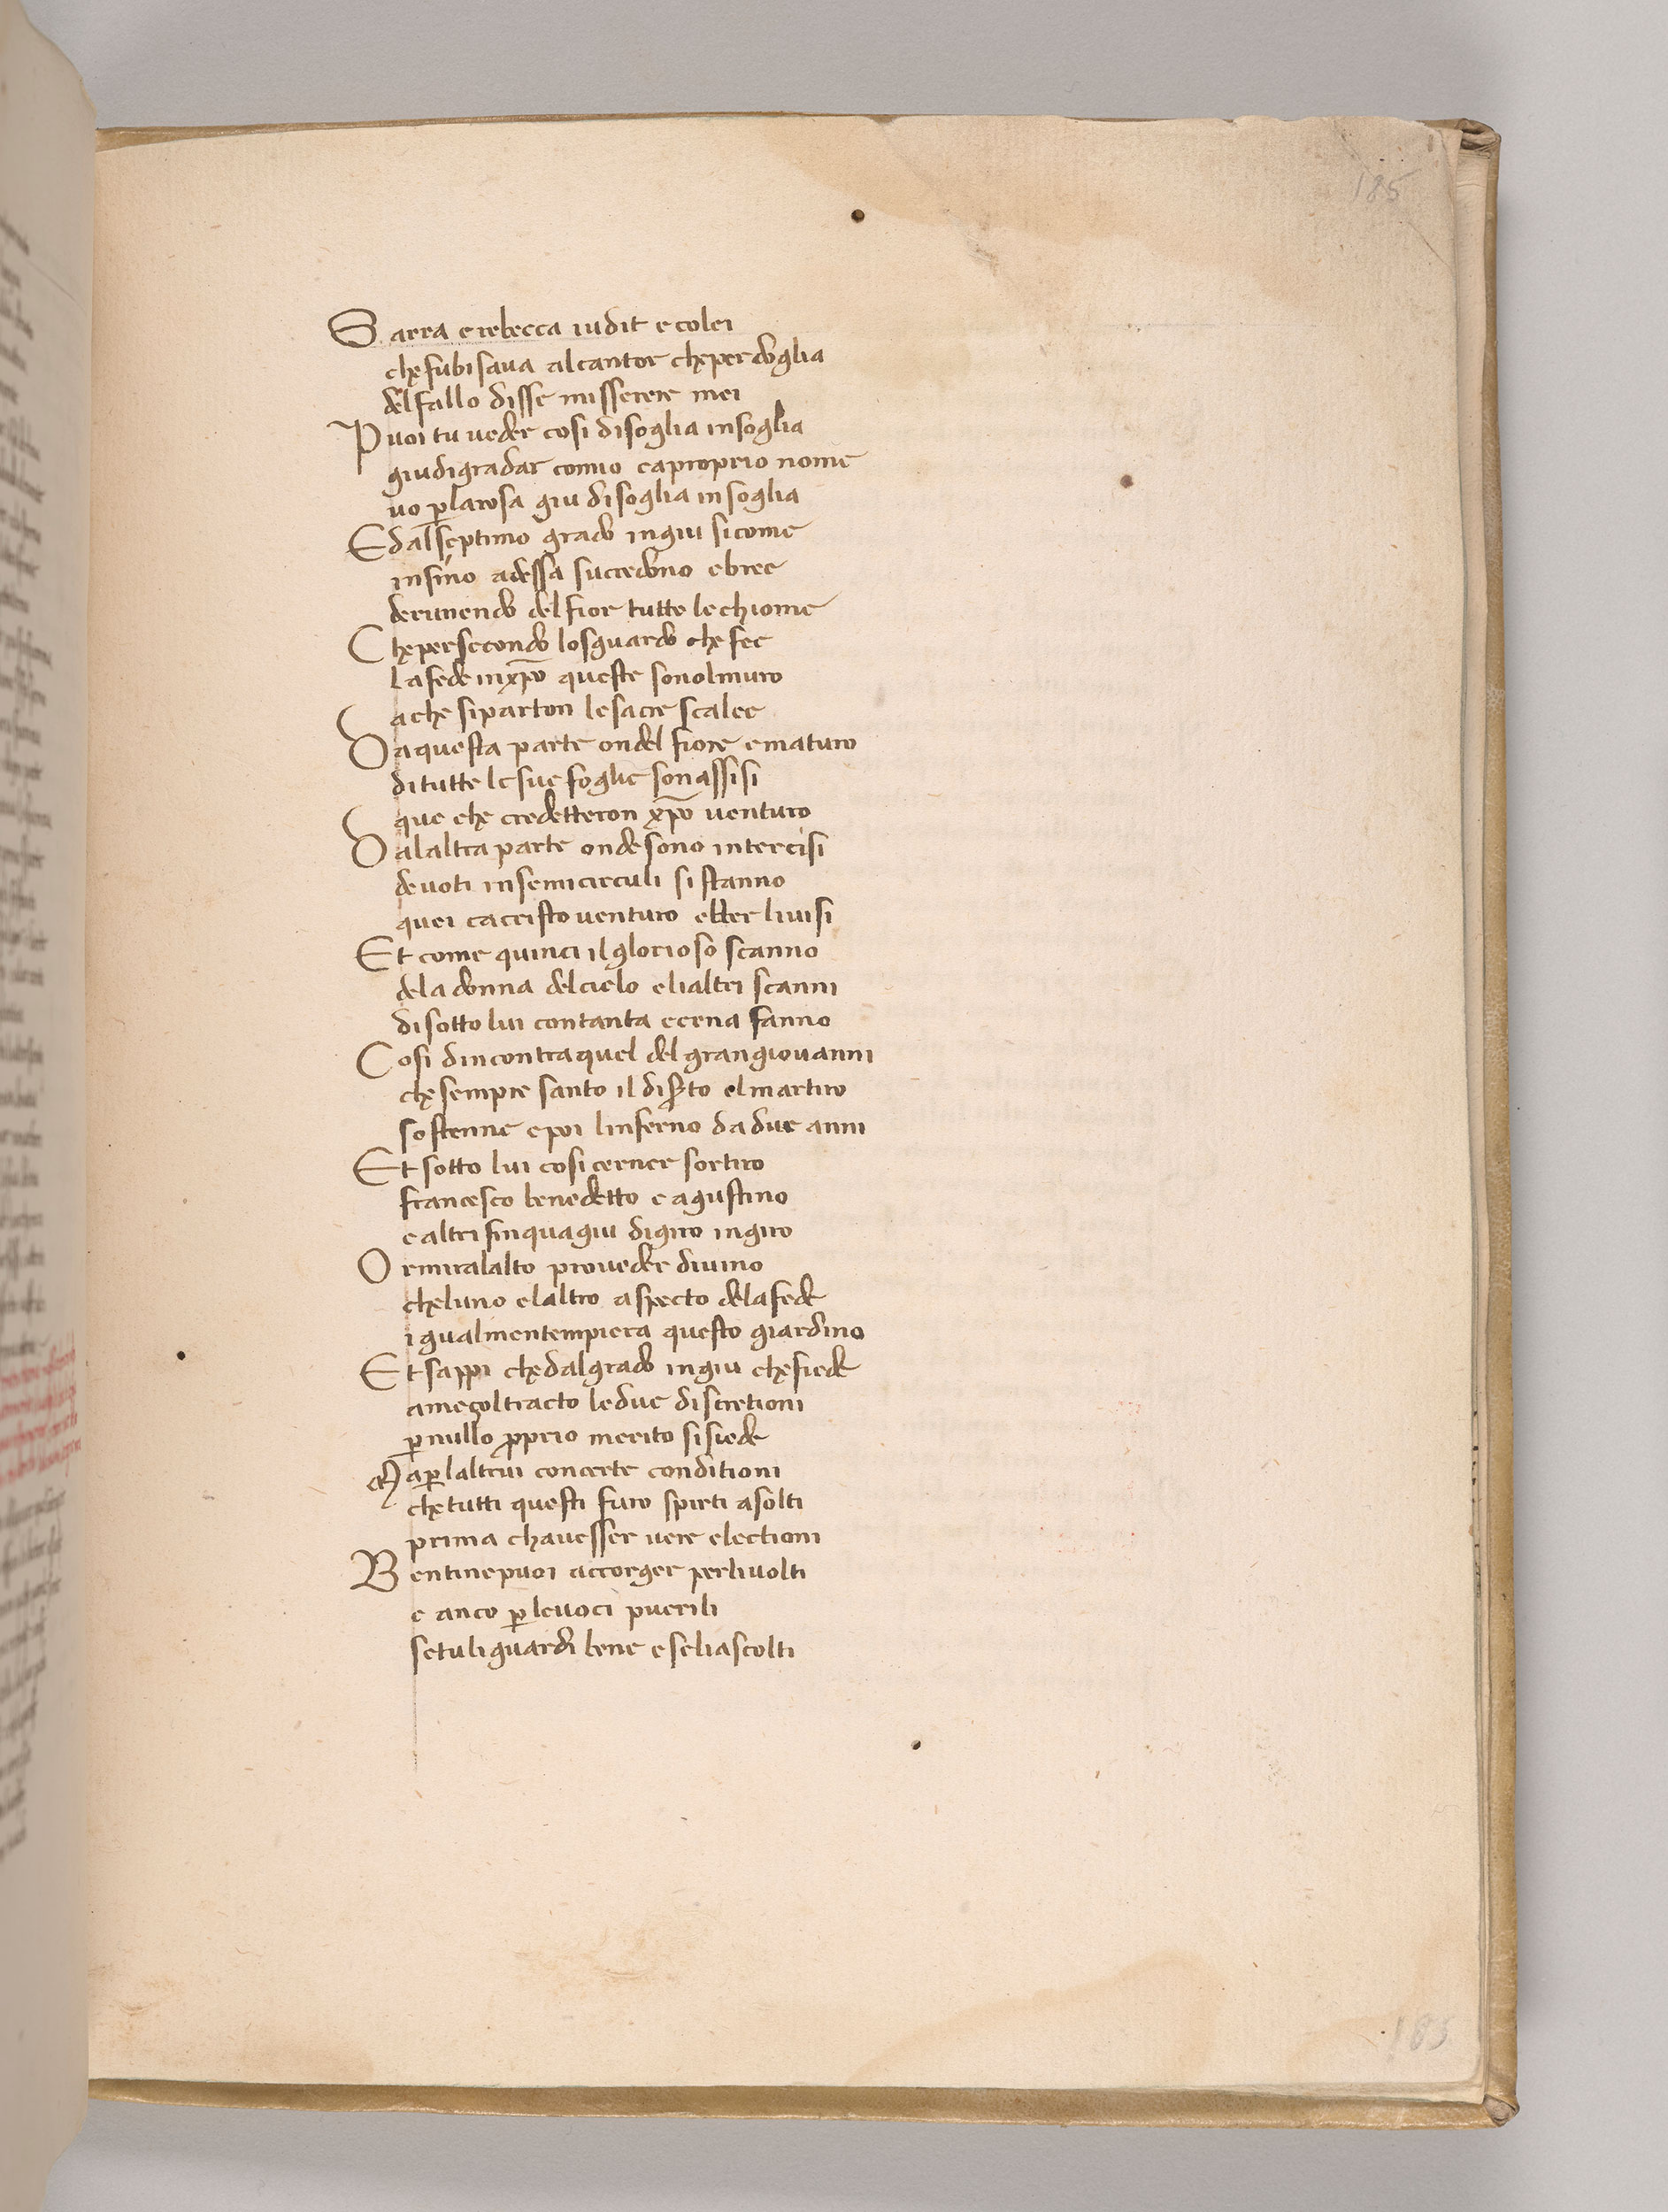 185
Sarra e rebecca iudit e colei
che fu bisava al cantor che per doglia
del fallo disse misserere mei
Puoi tu ueder cosi di soglia in soglia
giu digradar comio ca proprio nome
uo p̲ la rosa giu di soglia in soglia
E dal septimo grado in giu si come
insino ad essa succedono ebree
derimendo del fior tutte le chiome
Che per secondo lo sguardo che fee
La fede in xp̅o queste sonol muro
a che si parton le sacre scalee
Da questa parte ondel fiore e maturo
di tutte le sue foglie son assisi
que che credetteron xp̅o uenturo
Da laltra parte onde sono intercisi
deuoti in semicirculi si stanno
quei ca cristo uenturo ebber li uisi
Et come quinci il glorioso scanno
de la donna del cielo e li altri scanni
di sotto lui contanta cerna fanno
Cosi dincontra quel del gran giouanni
che sempre santo il diserto el martiro
sostenne e poi linferno da due anni
Et sotto lui cosi cerner sortiro
francesco benedetto e agustino
e altri fin qua giu di giro in giro
Or mira lalto proueder diuino
che luno e laltro aspecto de la fede
igualmentempiera questo giardino
Et sappi che dal grado in giu che fiede
a meçol tracto le due discretioni
p̲ nullo p̲prio merito si siede
Ma p̲ laltrui con certe conditioni
che tutti questi furo spirti asolti
prima chauesser uere electioni
Ben tine puoi accorger per li uolti
e anco p̲ le uoci puerili
se tu li guardi bene e se li ascolti
185